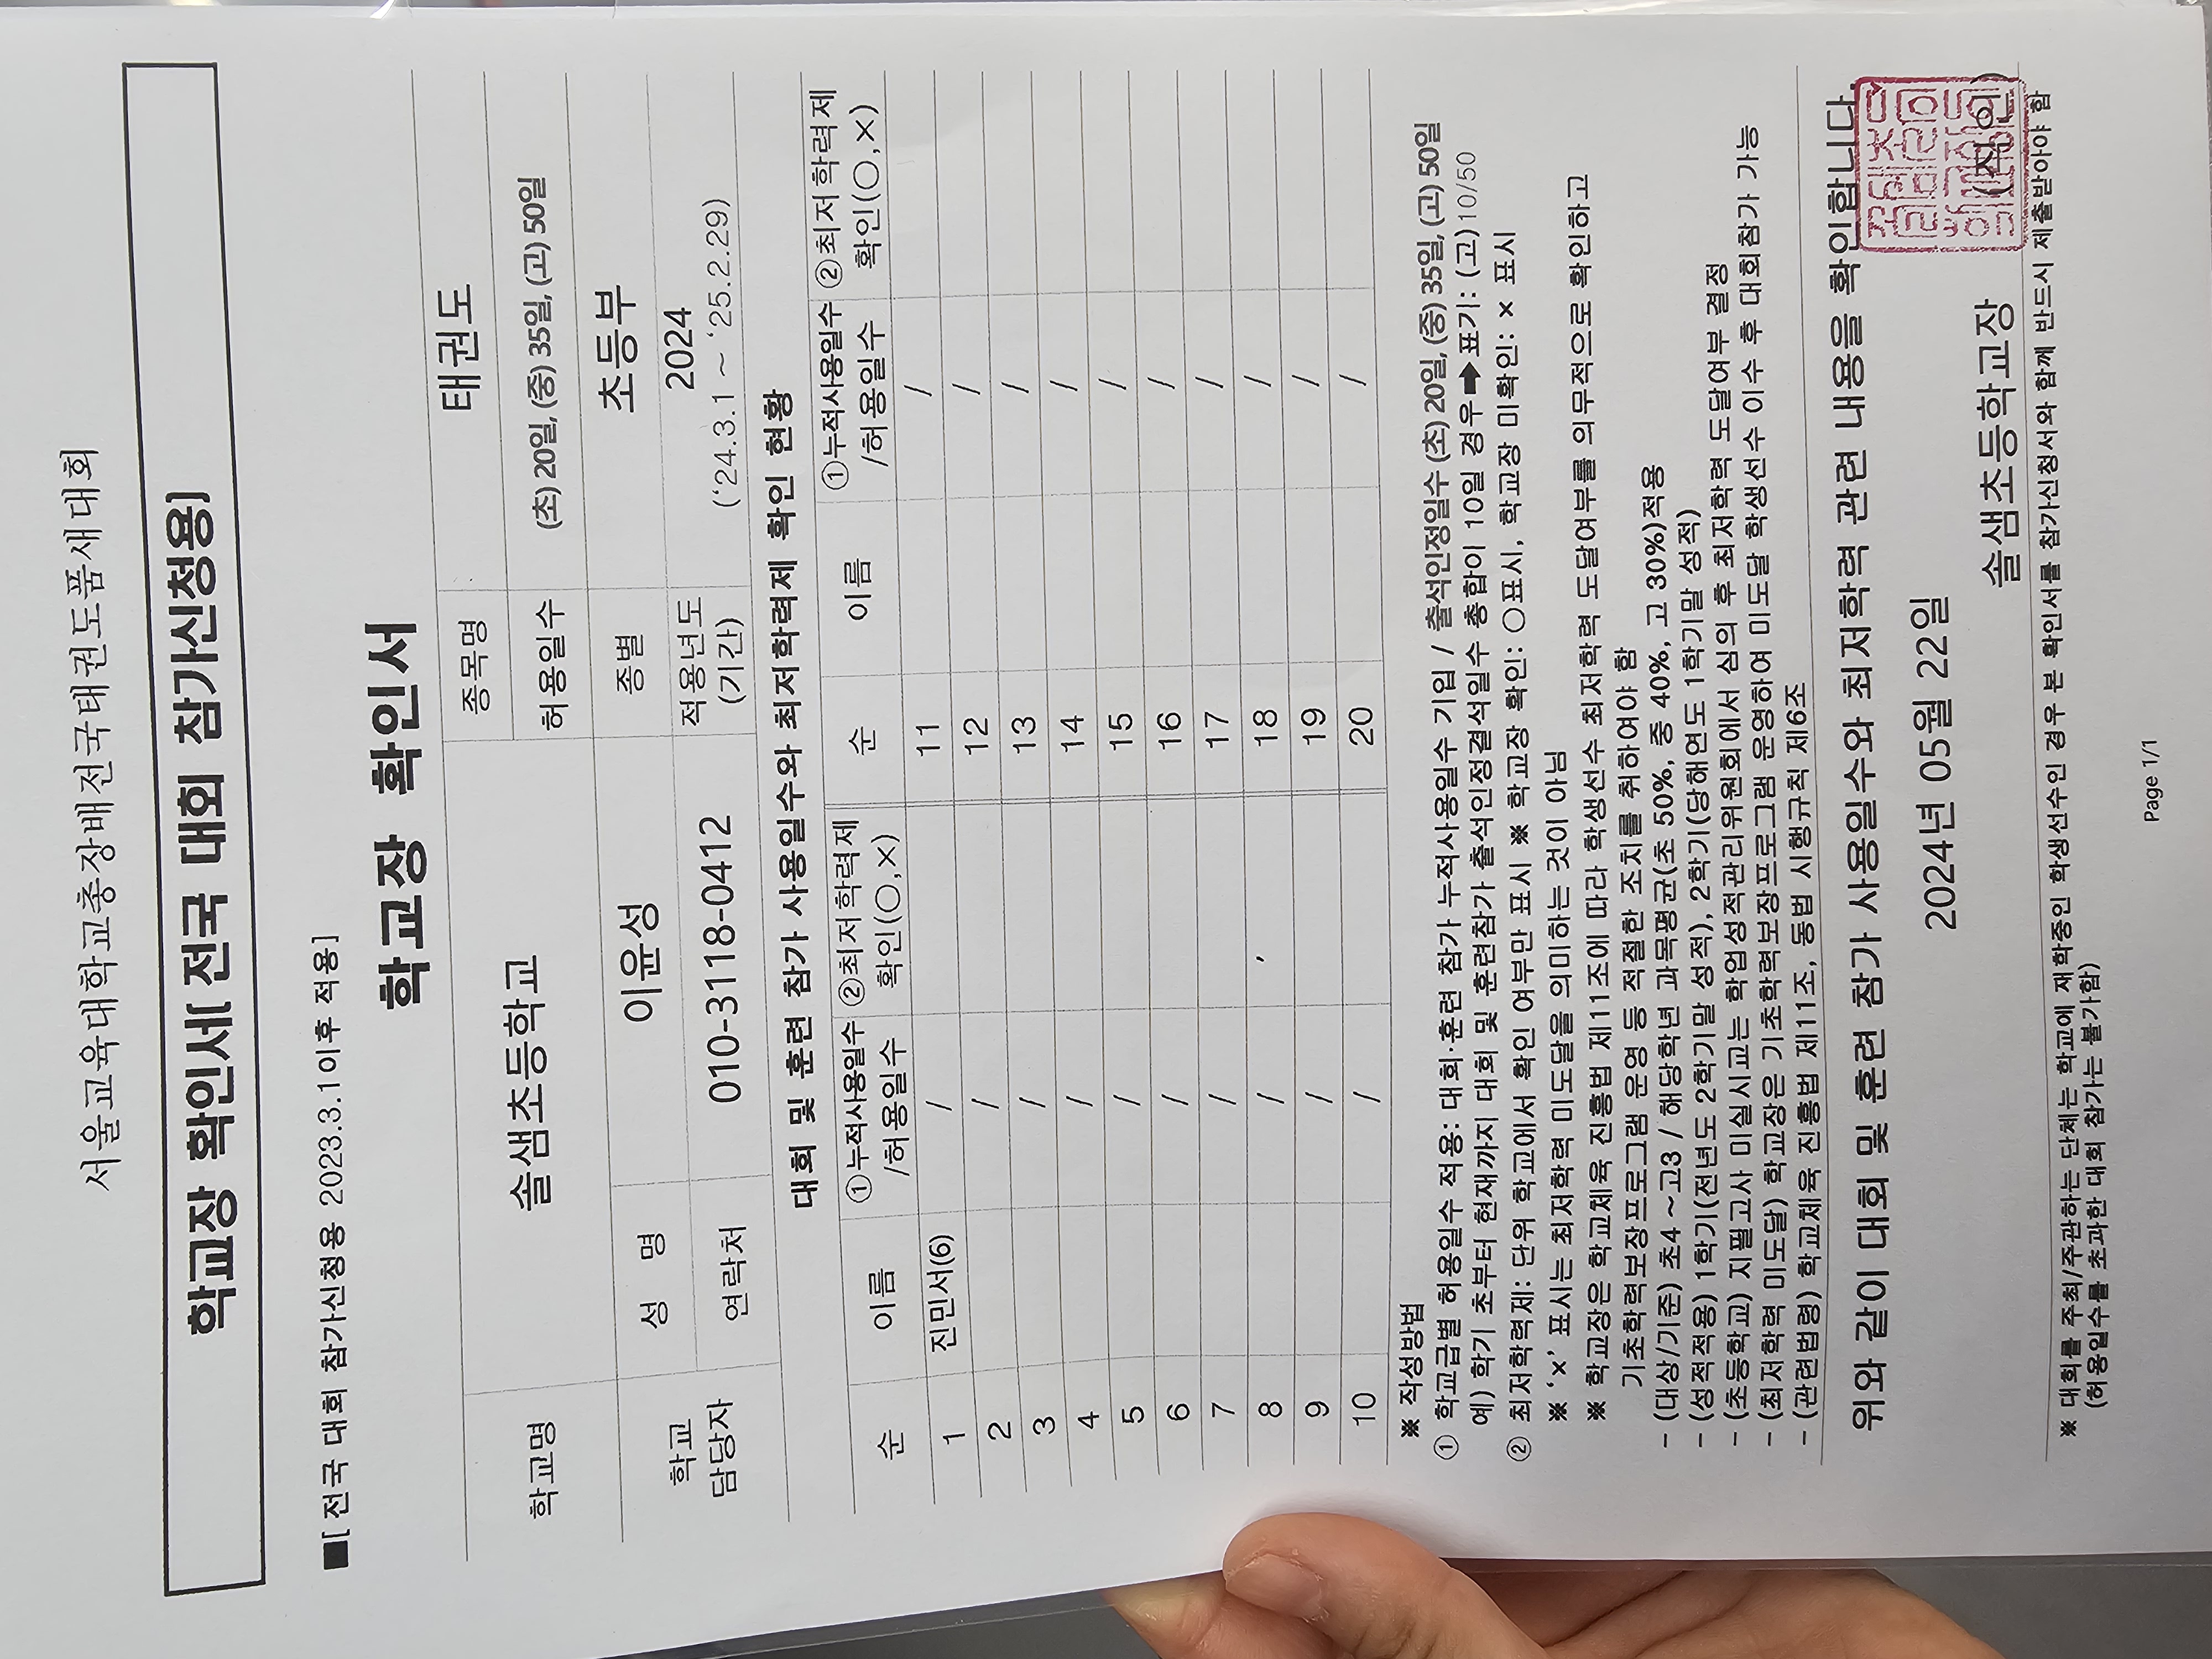 서울교육대학교총장배전국태권도품새대회
학교장 확인서[ 전국 대회 참가신청용]
■[ 전국 대회 참가신청용 2023.3.1이후 적용]
학교장 확인서
학교명 솔샘초등학교 종목명 태권도
허용일수 (초) 20일, (중) 35일, (고) 50일
학교 담당자 성 명 이윤성 종별 초등부
연락처 010-3118-0412 적용년도 (기간) 2024 ('24.3.1 ~ '25.2.29)
대회 및 훈련 참가 사용일수와 최저학력제 확인 현황
순 이름 ①누적사용일수 /허용일수 ②최저학력제 확인(○,×) 순 이름 ①누적사용일수 /허용일수 ②최저학력제 확인(○,×)
1 진민서(6) / 11 /
2 / 12 /
3 / 13 /
4 / 14 /
5 / 15 /
6 / 16 /
7 / 17 /
8 / 18 /
9 / 19 /
10 / 20 /
※ 작성방법
① 학교급별 허용일수 적용: 대회·훈련 참가 누적사용일수 기입 / 출석인정일수 (초) 20일, (중) 35일, (고) 50일
예) 학기 초부터 현재까지 대회 및 훈련참가 출석인정결석일수 총합이 10일 경우➡표기: (고) 10/50
② 최저학력제: 단위 학교에서 확인 여부만 표시 ※ 학교장 확인: ○표시, 학교장 미확인: × 표시
※ '×' 표시는 최저학력 미도달을 의미하는 것이 아님
※ 학교장은 학교체육 진흥법 제11조에 따라 학생선수 최저학력 도달여부를 의무적으로 확인하고
기초학력보장프로그램 운영 등 적절한 조치를 취하여야 함
- (대상/기준) 초4 ~고3 / 해당학년 과목평균(초 50%, 중 40%, 고 30%)적용
- (성적적용) 1학기(전년도 2학기말 성적), 2학기(당해연도 1학기말 성적)
- (초등학교) 지필고사 미실시교는 학업성적관리위원회에서 심의 후 최저학력 도달여부 결정
- (최저학력 미도달) 학교장은 기초학력보장프로그램 운영하여 미도달 학생선수 이수 후 대회참가 가능
- (관련법령) 학교체육 진흥법 제11조, 동법 시행규칙 제6조
위와 같이 대회 및 훈련 참가 사용일수와 최저학력 관련 내용을 확인합니다.
2024년 05월 22일
솔샘초등학교장 (직인)
※ 대회를 주최/주관하는 단체는 학교에 재학중인 학생선수인 경우 본 확인서를 참가신청서와 함께 반드시 제출받아야 함
(허용일수를 초과한 대회 참가는 불가함)
Page 1/1